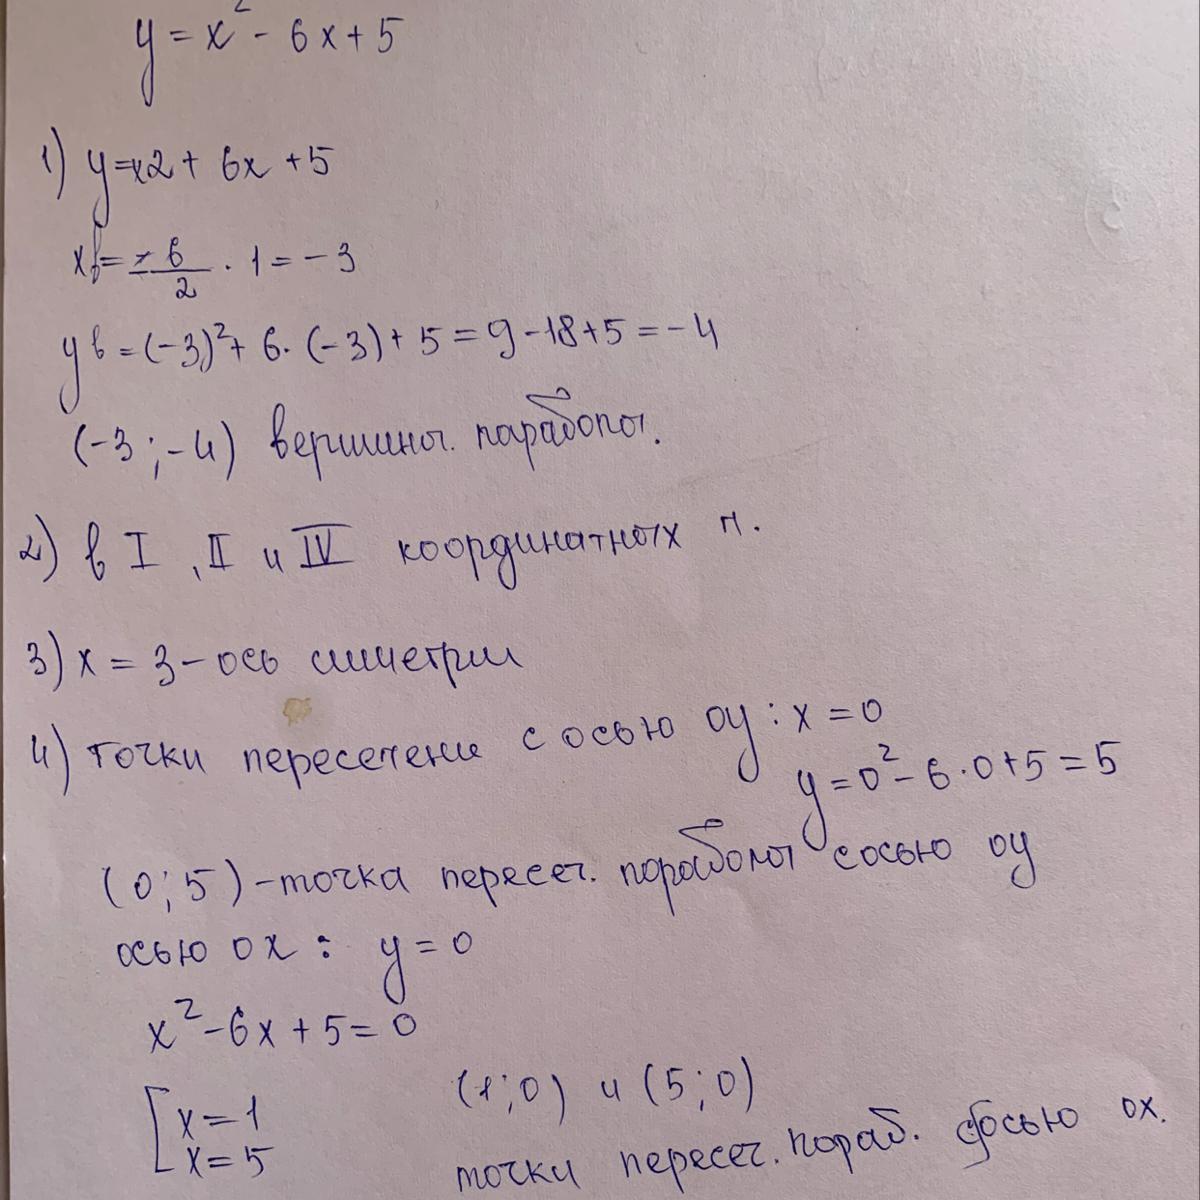 y = x² - 6x + 5
1) y=x2 + 6x + 5
xв = -6/2 · 1 = -3
yв = (-3)² + 6 · (-3) + 5 = 9 - 18 + 5 = -4
(-3 ; -4) вершины. параболы.
2) в I , II и IV координатных п.
3) x = 3 - ось симетрии
4) точки пересечение с осью оу : x = 0
y = 0² - 6 · 0 + 5 = 5
(0 ; 5) - точка пересеч. пораболы сосью оу
осью ох : y = 0
x² - 6x + 5 = 0
[ x = 1
x = 5
(1 ; 0) и (5 ; 0)
точки пересеч. пораб. с осью ох.